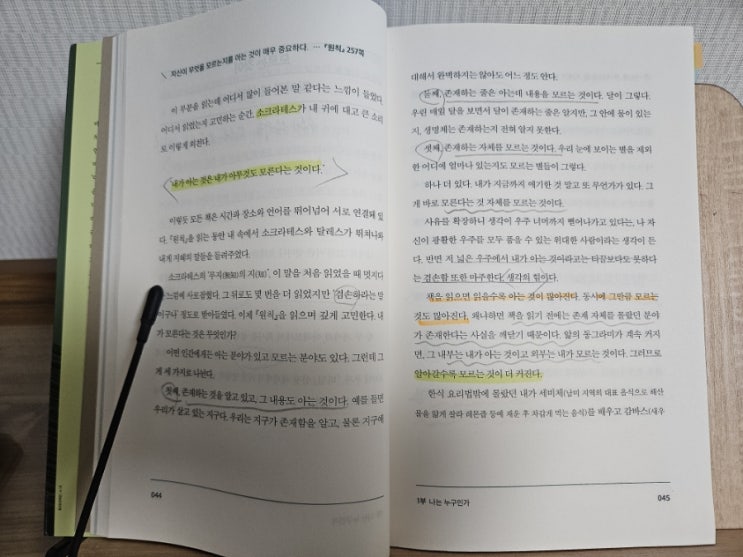 자신이 무엇을 모르는지를 아는 것이 매우 중요하다. … 『원칙』 257쪽
이 부분을 읽는데 어디서 많이 들어본 말 같다는 느낌이 들었다.
어디서 읽었는지 고민하는 순간, 소크라테스가 내 귀에 대고 큰 소리
로 이렇게 외친다.
'내가 아는 것은 내가 아무것도 모른다는 것이다.'
이렇듯 모든 책은 시간과 장소와 언어를 뛰어넘어 서로 연결돼 있
다. 『원칙』을 읽는 동안 내 속에서 소크라테스와 탈레스가 튀쳐나와
내게 지혜의 말들을 들려주었다.
소크라테스의 '무지(無知)의 지(知)', 이 말을 처음 읽었을 때 멋지다
는 느낌에 사로잡혔다. 그 뒤로도 몇 번을 더 읽었지만 '겸손하라는 말
이구나' 정도로 받아들였다. 이제 『원칙』을 읽으며 깊게 고민한다. 내
가 모른다는 것은 무엇인가?
어떤 인간에게든 아는 분야가 있고 모르는 분야도 있다. 그런데 그
게 세 가지로 나뉜다.
첫째, 존재하는 것을 알고 있고, 그 내용도 아는 것이다. 예를 들면
우리가 살고 있는 지구다. 우리는 지구가 존재함을 알고, 물론 지구에
044
대해서 완벽하지는 않아도 어느 정도 안다.
둘째, 존재하는 줄은 아는데 내용을 모르는 것이다. 달이 그렇다.
우린 매일 달을 보면서 달이 존재하는 줄은 알지만, 그 안에 물이 있는
지, 생명체는 존재하는지 전혀 알지 못한다.
셋째, 존재하는 자체를 모르는 것이다. 우리 눈에 보이는 별을 제외
한 어디에 얼마나 있는지도 모르는 별들이 그렇다.
하나 더 있다. 내가 지금까지 얘기한 것 말고 또 무언가가 있다. 그
게 바로 모른다는 것 자체를 모르는 것이다.
사유를 확장하니 생각이 우주 너머까지 뻗어나가고 있다는, 나 자
신이 광활한 우주를 모두 품을 수 있는 위대한 사람이라는 생각이 든
다. 반면 저 넓은 우주에서 내가 아는 것이라고는 티끌보다도 못하다
는 겸손함 또한 마주한다. 생각의 힘이다.
책을 읽으면 읽을수록 아는 것이 많아진다. 동시에 그만큼 모르는
것도 많아진다. 왜냐하면 책을 읽기 전에는 존재 자체를 몰랐던 분야
가 존재한다는 사실을 깨닫기 때문이다. 앎의 동그라미가 계속 커지
면, 그 내부는 내가 아는 것이고 외부는 내가 모르는 것이다. 그러므로
알아갈수록 모르는 것이 더 커진다.
한식 요리법밖에 몰랐던 내가 세비체(남미 지역의 대표 음식으로 해산
물을 얇게 잘라 레몬즙 등에 재운 후 차갑게 먹는 음식)를 배우고 감바스(새우
1부 나는 누구인가
045